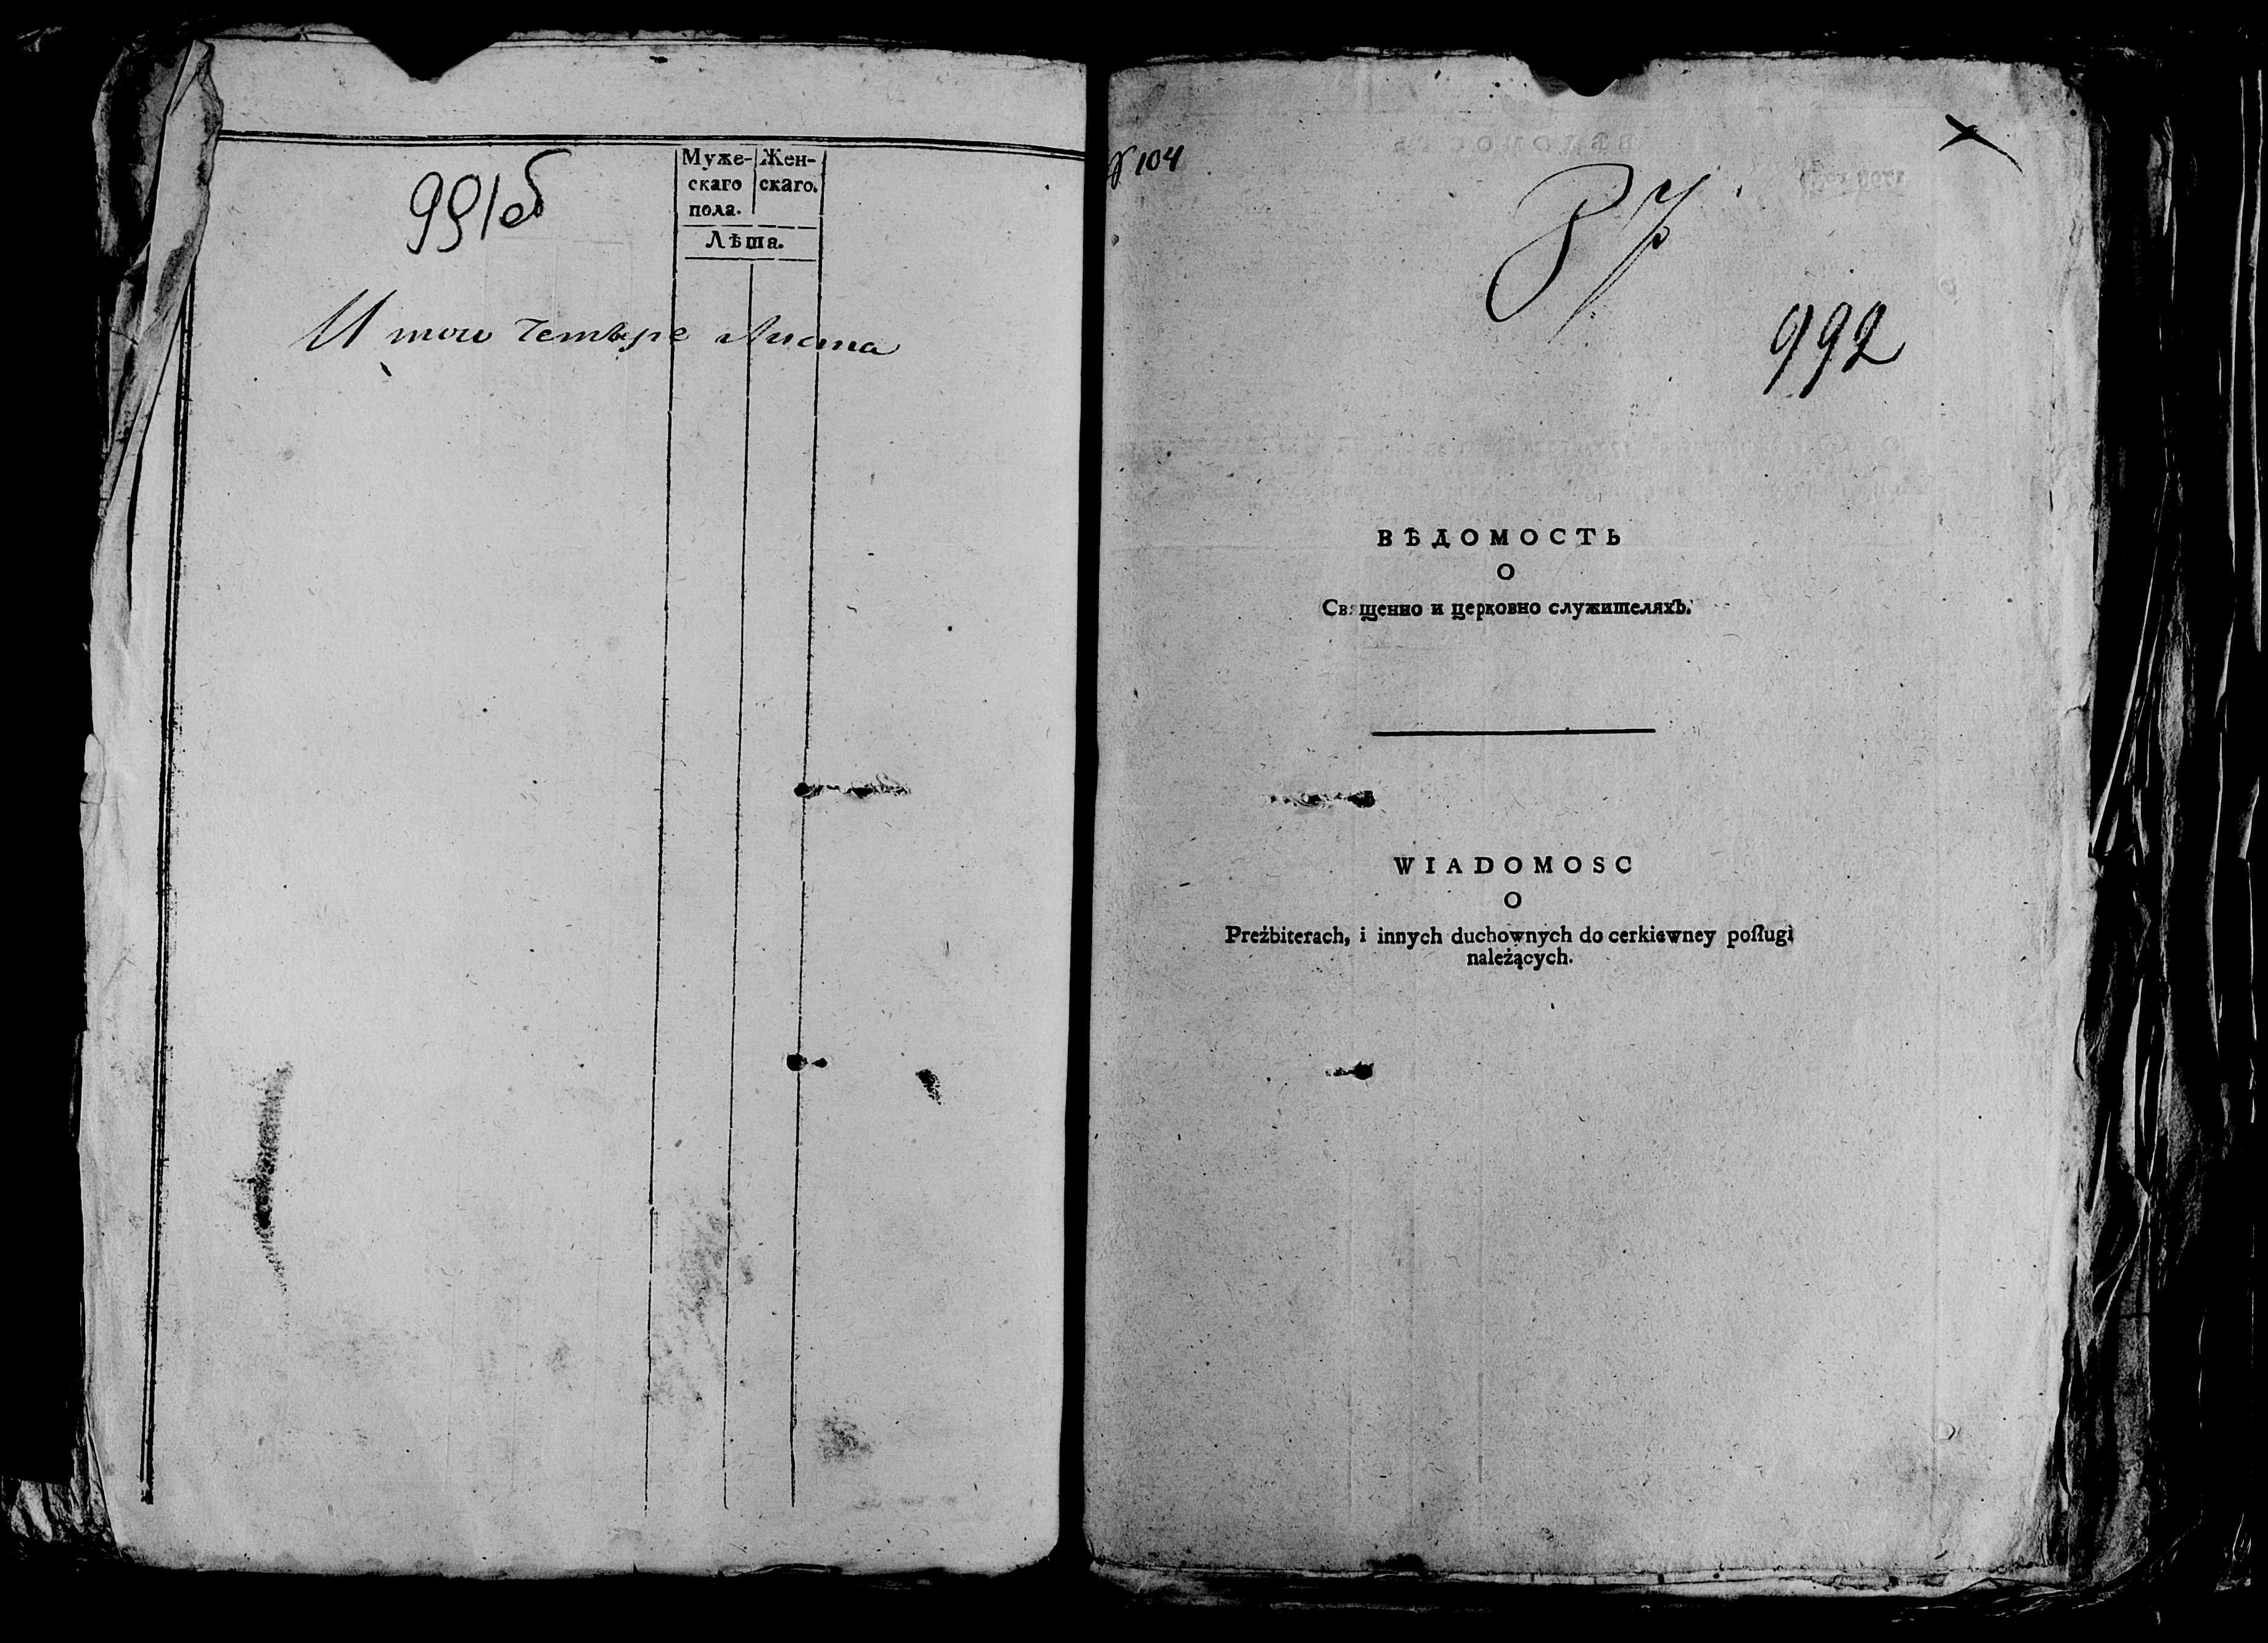 991об
Муже- Жен-
скаго скаго.
пола.
Лѣта.
И того Четыре Листа
№ 104
992
ВѢДОМОСТЬ
О
Священно и церковно служителяхЪ.
WIADOMOSC
O
Preźbiterach, i innych duchownych do cerkiewney poſługi
należących.